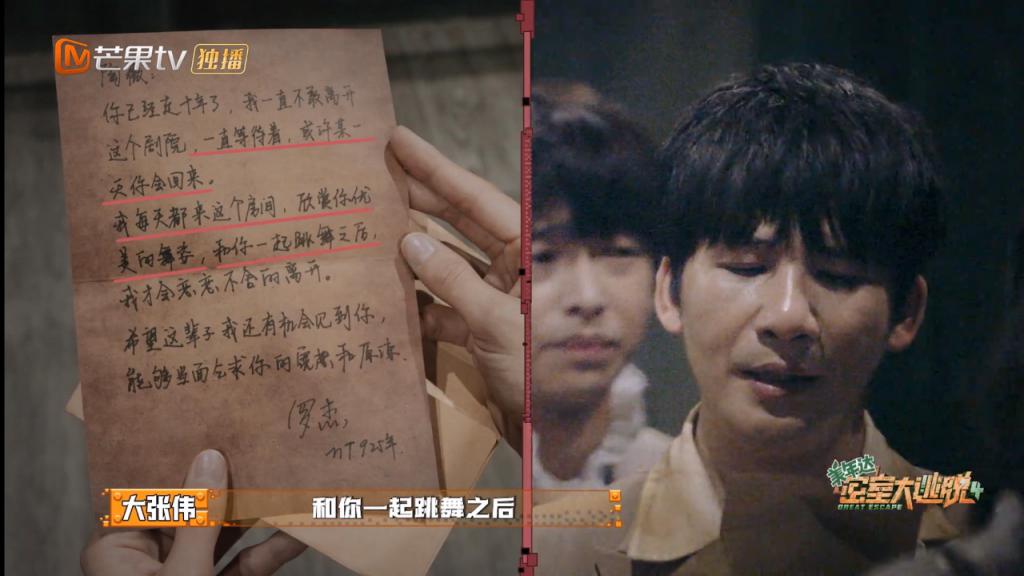 芒果tv 独播
你已经走十年了，我一直不敢离开
这个剧院，一直等待着，或许某一
天你会回来。
我每天都来这个房间，欣赏你优
美的舞姿，和你一起跳舞之后，
我才会恋恋不舍的离开。
希望这辈子我还有机会见到你，
能够当面乞求你的宽恕和原谅.
罗杰,
925年.
大张伟 和你一起跳舞之后
美年达
密室大逃脱4
GREAT ESCAPE